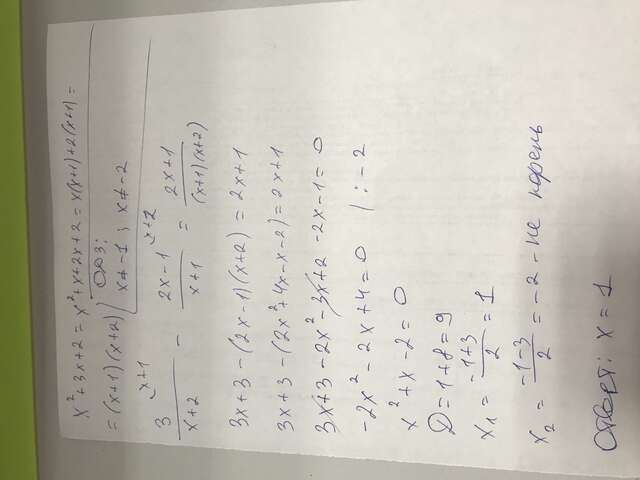 x² + 3x + 2 = x² + x + 2x + 2 = x(x+1) + 2(x+1) =
= (x+1)(x+2) ОДЗ:
x ≠ -1 ; x ≠ -2
3/(x+2) ⌣x+1 - (2x-1)/(x+1) ⌣x+2 = (2x+1)/((x+1)(x+2))
3x + 3 - (2x-1)(x+2) = 2x+1
3x + 3 - (2x² + 4x - x - 2) = 2x+1
3x + 3 - 2x² - 3x + 2 - 2x - 1 = 0
-2x² - 2x + 4 = 0 | : -2
x² + x - 2 = 0
D = 1 + 8 = 9
x₁ = (-1+3)/2 = 1
x₂ = (-1-3)/2 = -2 - не корень
Ответ: x = 1